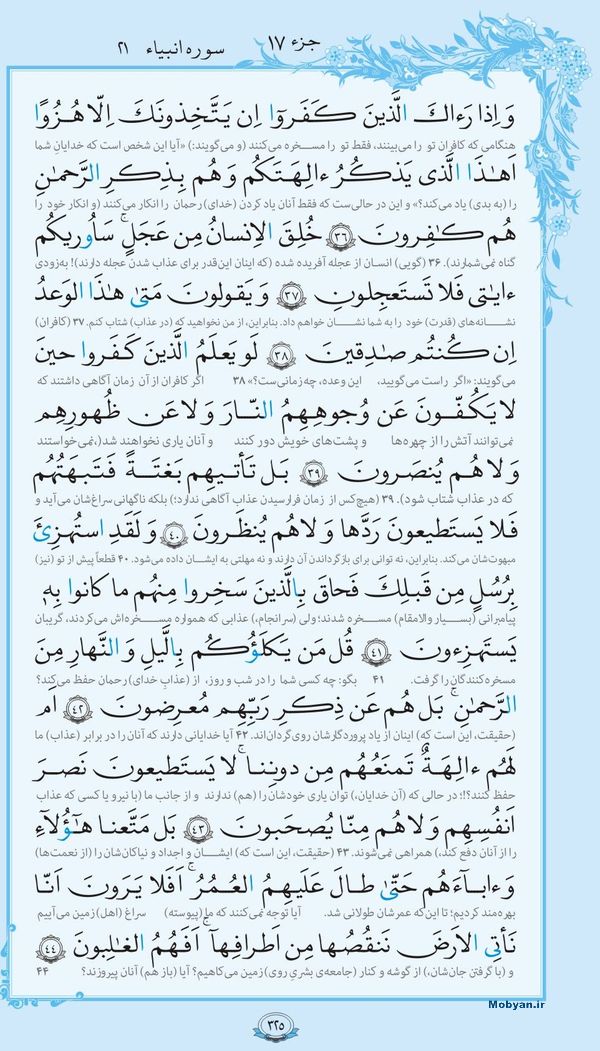 جزء ۱۷ سوره انبیاء ۲۱
وَ اِذا رَءاكَ الَّذینَ كَفَرَوٓا اِن یَتَّخِذونَكَ اِلّا هُزُوًا
هنگامی که کافران تو را می‌بینند، فقط تو را مسخره می‌کنند (و می‌گویند:) «آیا این شخص است که خدایانِ شما
اَهٰذَا الَّذی یَذكُرُ ءالِهَتَكُم وَ هُم بِذِكرِ الرَّحمٰنِ
را (به بدی) یاد می‌کند؟» و این در حالی‌ست که فقط آنان یاد کردن (خدای) رحمان را انکار می‌کنند (و انکار خود را
هُم كٰفِرونَ ۳۶ خُلِقَ الاِنسانُ مِن عَجَلٍۚ سَاُوریكُم
گناه نمی‌شمارند). ۳۶ (گویی) انسان از عجله آفریده شده (که اینان این‌قدر برای عذاب شدن عجله دارند)! به‌زودی
ءایٰتی فَلا تَستَعجِلونِ ۳۷ وَ یَقولونَ مَتیٰ هٰذَا الوَعدُ
نشانه‌های (قدرت) خود را به شما نشان خواهم داد. بنابراین، از من نخواهید که (در عذاب) شتاب کنم. ۳۷ (کافران)
اِن كُنتُم صٰدِقینَ ۳۸ لَو یَعلَمُ الَّذینَ كَفَروا حینَ
می‌گویند: «اگر راست می‌گویید، این وعده، چه زمانی‌ست؟» ۳۸ اگر کافران از آن زمان آگاهی داشتند که
لا یَكُفّونَ عَن وُجوهِهِمُ النّارَ وَ لا عَن ظُهورِهِم
نمی‌توانند آتش را از چهره‌ها و پشت‌های خویش دور کنند و آنان یاری نخواهند شد(، نمی‌خواستند
وَ لا هُم یُنصَرونَ ۳۹ بَل تَأتیهِم بَغتَةً فَتَبهَتُهُم
که در عذاب شتاب شود). ۳۹ (هیچ‌کس از زمان فرارسیدن عذاب آگاهی ندارد؛) بلکه ناگهانی سراغشان می‌آید و
فَلا یَستَطیعونَ رَدَّها وَ لا هُم یُنظَرونَ ۴۰ وَ لَقَدِ استُهزِئَ
مبهوتشان می‌کند. بنابراین، نه توانی برای بازگرداندن آن دارند و نه مهلتی به ایشان داده می‌شود. ۴۰ قطعاً پیش از تو (نیز)
بِرُسُلٍ مِن قَبلِكَ فَحاقَ بِالَّذینَ سَخِروا مِنهُم ما كانوا بِهٖ
پیامبرانی (بسیار و والامقام) مسخره شدند؛ ولی (سرانجام،) عذابی که همواره مسخره‌اش می‌کردند، گریبان
یَستَهزِءونَ ۴۱ قُل مَن یَكلَؤُكُم بِالَّیلِ وَ النَّهارِ مِنَ
مسخره‌کنندگان را گرفت. ۴۱ بگو: چه کسی شما را در شب و روز، از (عذابِ خدای) رحمان حفظ می‌کند؟
الرَّحمٰنِۚ بَل هُم عَن ذِكرِ رَبِّهِم مُعرِضونَ ۴۲ اَم
(حقیقت، این است که) اینان از یاد پروردگارشان روی‌گردان‌اند. ۴۲ آیا خدایانی دارند که آنان را در برابر (عذاب) ما
لَهُم ءالِهَةٌ تَمنَعُهُم مِن دونِناۚ لا یَستَطیعونَ نَصرَ
حفظ کنند؟!؛ در حالی که (آن خدایان،) توان یاری خودشان را (هم) ندارند و از جانب ما (با نیرو یا کسی که عذاب
اَنفُسِهِم وَ لا هُم مِنّا یُصحَبونَ ۴۳ بَل مَتَّعنا هٰٓؤُلآءِ
را از آنان دفع کند،) همراهی نمی‌شوند. ۴۳ (حقیقت، این است که) ایشان و اجداد و نیاکانشان را (از نعمت‌ها)
وَ ءابآءَهُم حَتّیٰ طالَ عَلَیهِمُ العُمُرُۗ اَفَلا یَرَونَ اَنّا
بهره‌مند کردیم؛ تا این‌که عمرشان طولانی شد. آیا توجه نمی‌کنند که ما (پیوسته) سراغ (اهل) زمین می‌آییم
نَأتِی الاَرضَ نَنقُصُها مِن اَطرافِهاۚ اَفَهُمُ الغٰلِبونَ ۴۴
و (با گرفتن جان‌شان،) از گوشه و کنار (جامعه‌ی بشریِ روی) زمین می‌کاهیم؟ آیا (باز هم) آنان پیروزند؟ ۴۴
Mobyan.ir
۳۲۵